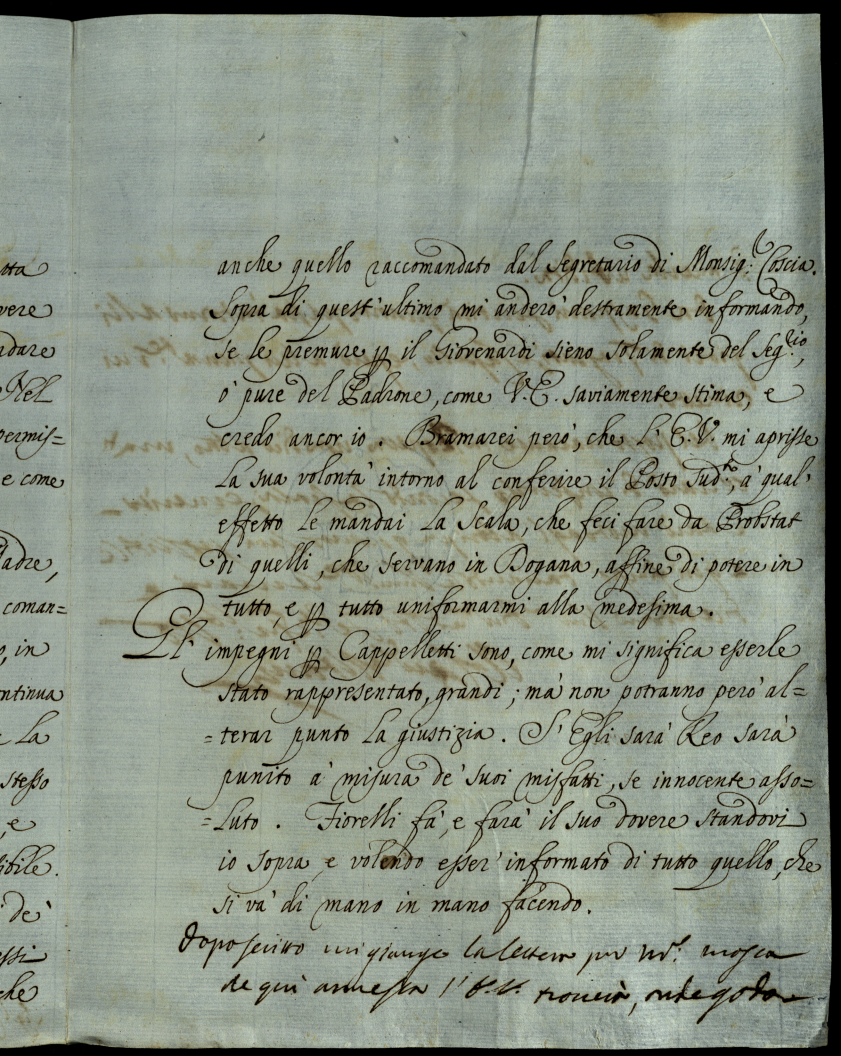 tta
vere
ndare
Nel
permis=
e come
ladre,
coman=
o, in
ntinua
e la
stesso
, e
sibile.
de'
essi
che
anche quello raccomandato dal Segretario di Monsig.r Coscia.
Sopra di quest'ultimo mi anderò destramente informando,
se le premure p il Giovenardi sieno solamente del Seg.rio,
ò pure del Padrone, come V.E. saviamente stima, e
credo ancor io. Bramarei però, che l'E.V. mi aprisse
la sua volontà intorno al conferire il Posto sud.to, à qual'
effetto le mandai la Scala, che feci fare da Probstat
di quelli, che servano in Dogana, affine di potere in
tutto, e p tutto uniformarmi alla medesima.
Gl'impegni p Cappelletti sono, come mi significa esserle
stato rappresentato, grandi; mà non potranno però al=
=terar punto la giustizia. S'Egli sarà Reo sarà
punito à misura de' suoi misfatti, se innocente asso=
=luto. Fiorelli fà, e farà il suo dovere standovi
io sopra, e volendo esser' informato di tutto quello, che
si và di mano in mano facendo.
Dopo scritto mi giunge la lettera per M.r Mosca
che qui annessa l'E.V. troverà, onde godo